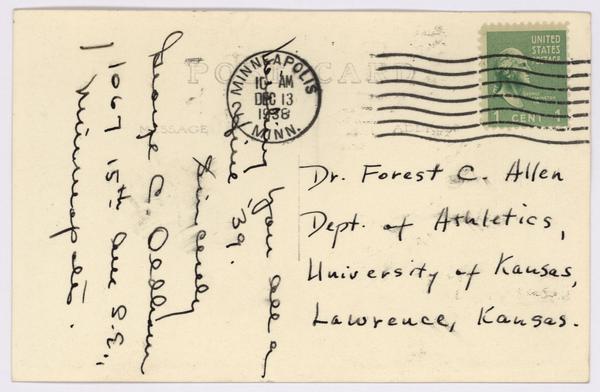 POST CARD
MINNEAPOLIS
10 AM
DEC 13
1938
2
MINN.
UNITED
STATES
POSTAGE
1 CENT 1
Dr. Forest C. Allen
Dept. of Athletics,
University of Kansas,
Lawrence, Kansas.
you all a
'39.
Sincerely
George C.
1067 15th Ave S.E.,
Minneapolis.